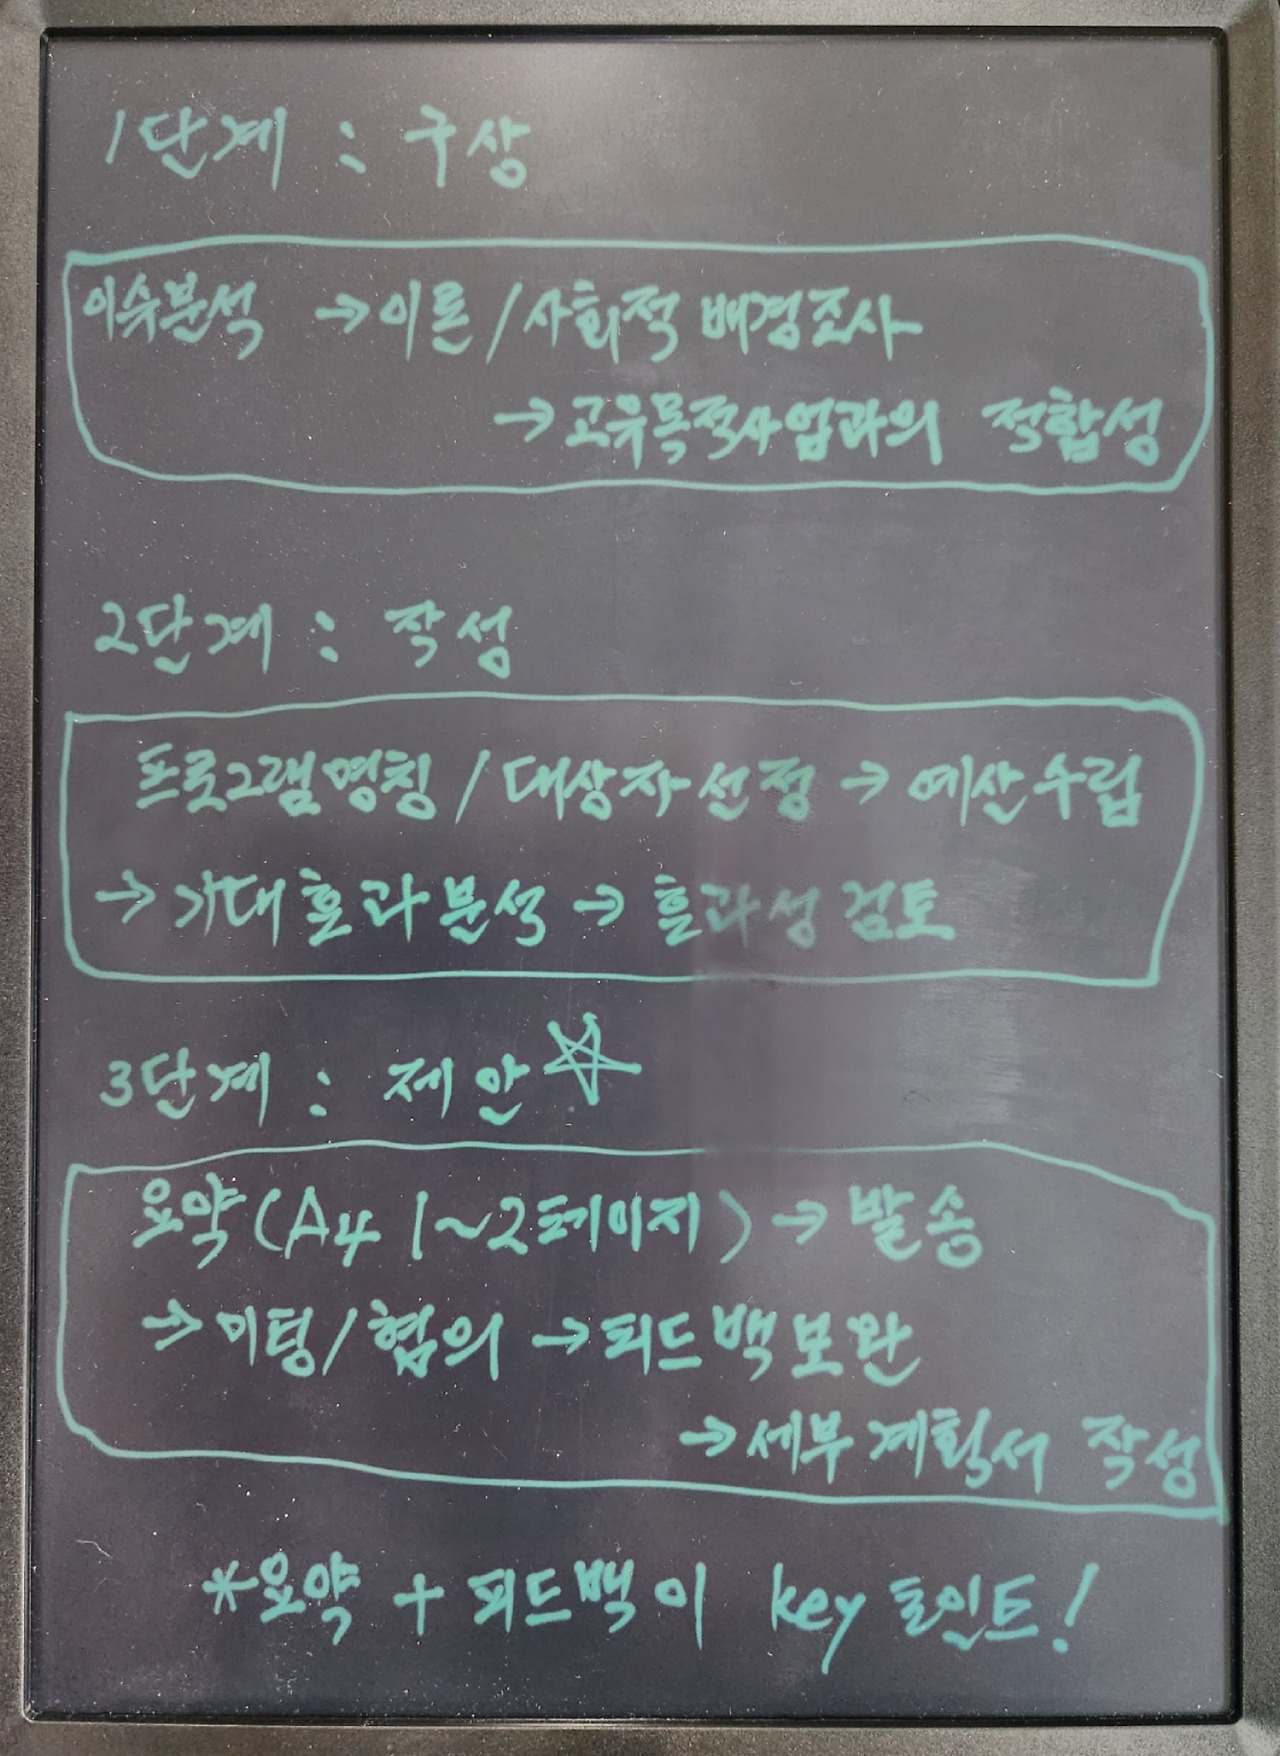 1단계 : 구상
이슈분석 → 이론/사회적 배경조사
→ 고유목적사업과의 적합성
2단계 : 작성
프로그램명칭/대상자선정 → 예산수립
→ 기대효과분석 → 효과성 검토
3단계 : 제안☆
요약(A4 1~2페이지) → 발송
→ 미팅/협의 → 피드백보완
→ 세부계획서 작성
*요약 + 피드백이 key 포인트!